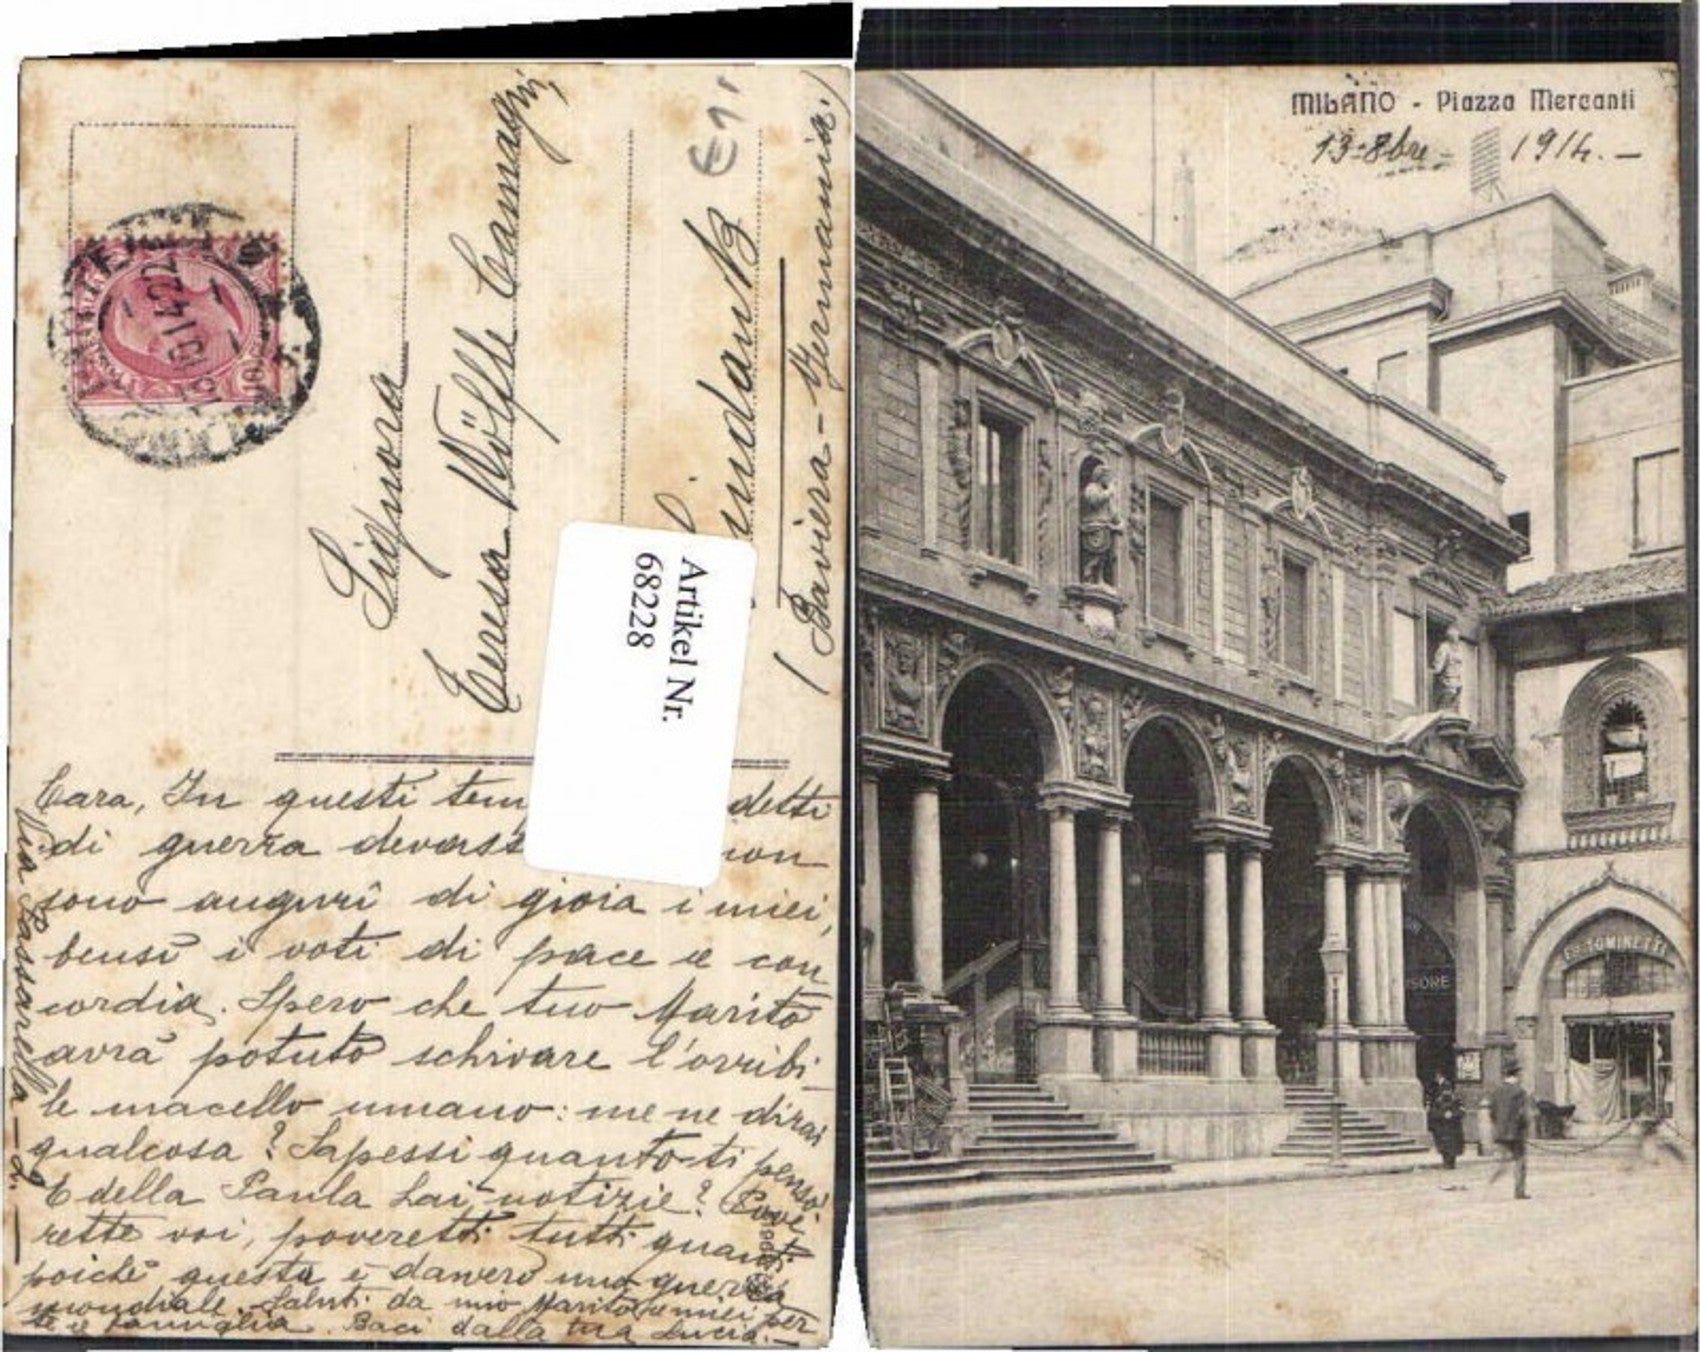 € 1'
13 10 14 22
Signora
Teresa Wölfle Camagni,
Lindau B
(Baviera - Germania)
Artikel Nr.
68228
Cara, In questi detti
di guerra non
sono auguri di gioia i miei,
bensì i voti di pace e con
cordia. Spero che tuo Marito
avrà potuto schivare l'orribi-
le macello umano: me ne dirai
qualcosa? Sapessi quanto ti penso!
E della Paula hai notizie? Pove-
rette voi, poveretti tutti quanti
poichè questa è davvero una guerra
mondiale. Saluti da mio Marito e miei per
te e famiglia. Baci dalla tua Lucia.-
Via Passarella - 2. -
MILANO - Piazza Mercanti
13-8bre- 1914. -
TOMINETTI
SORE